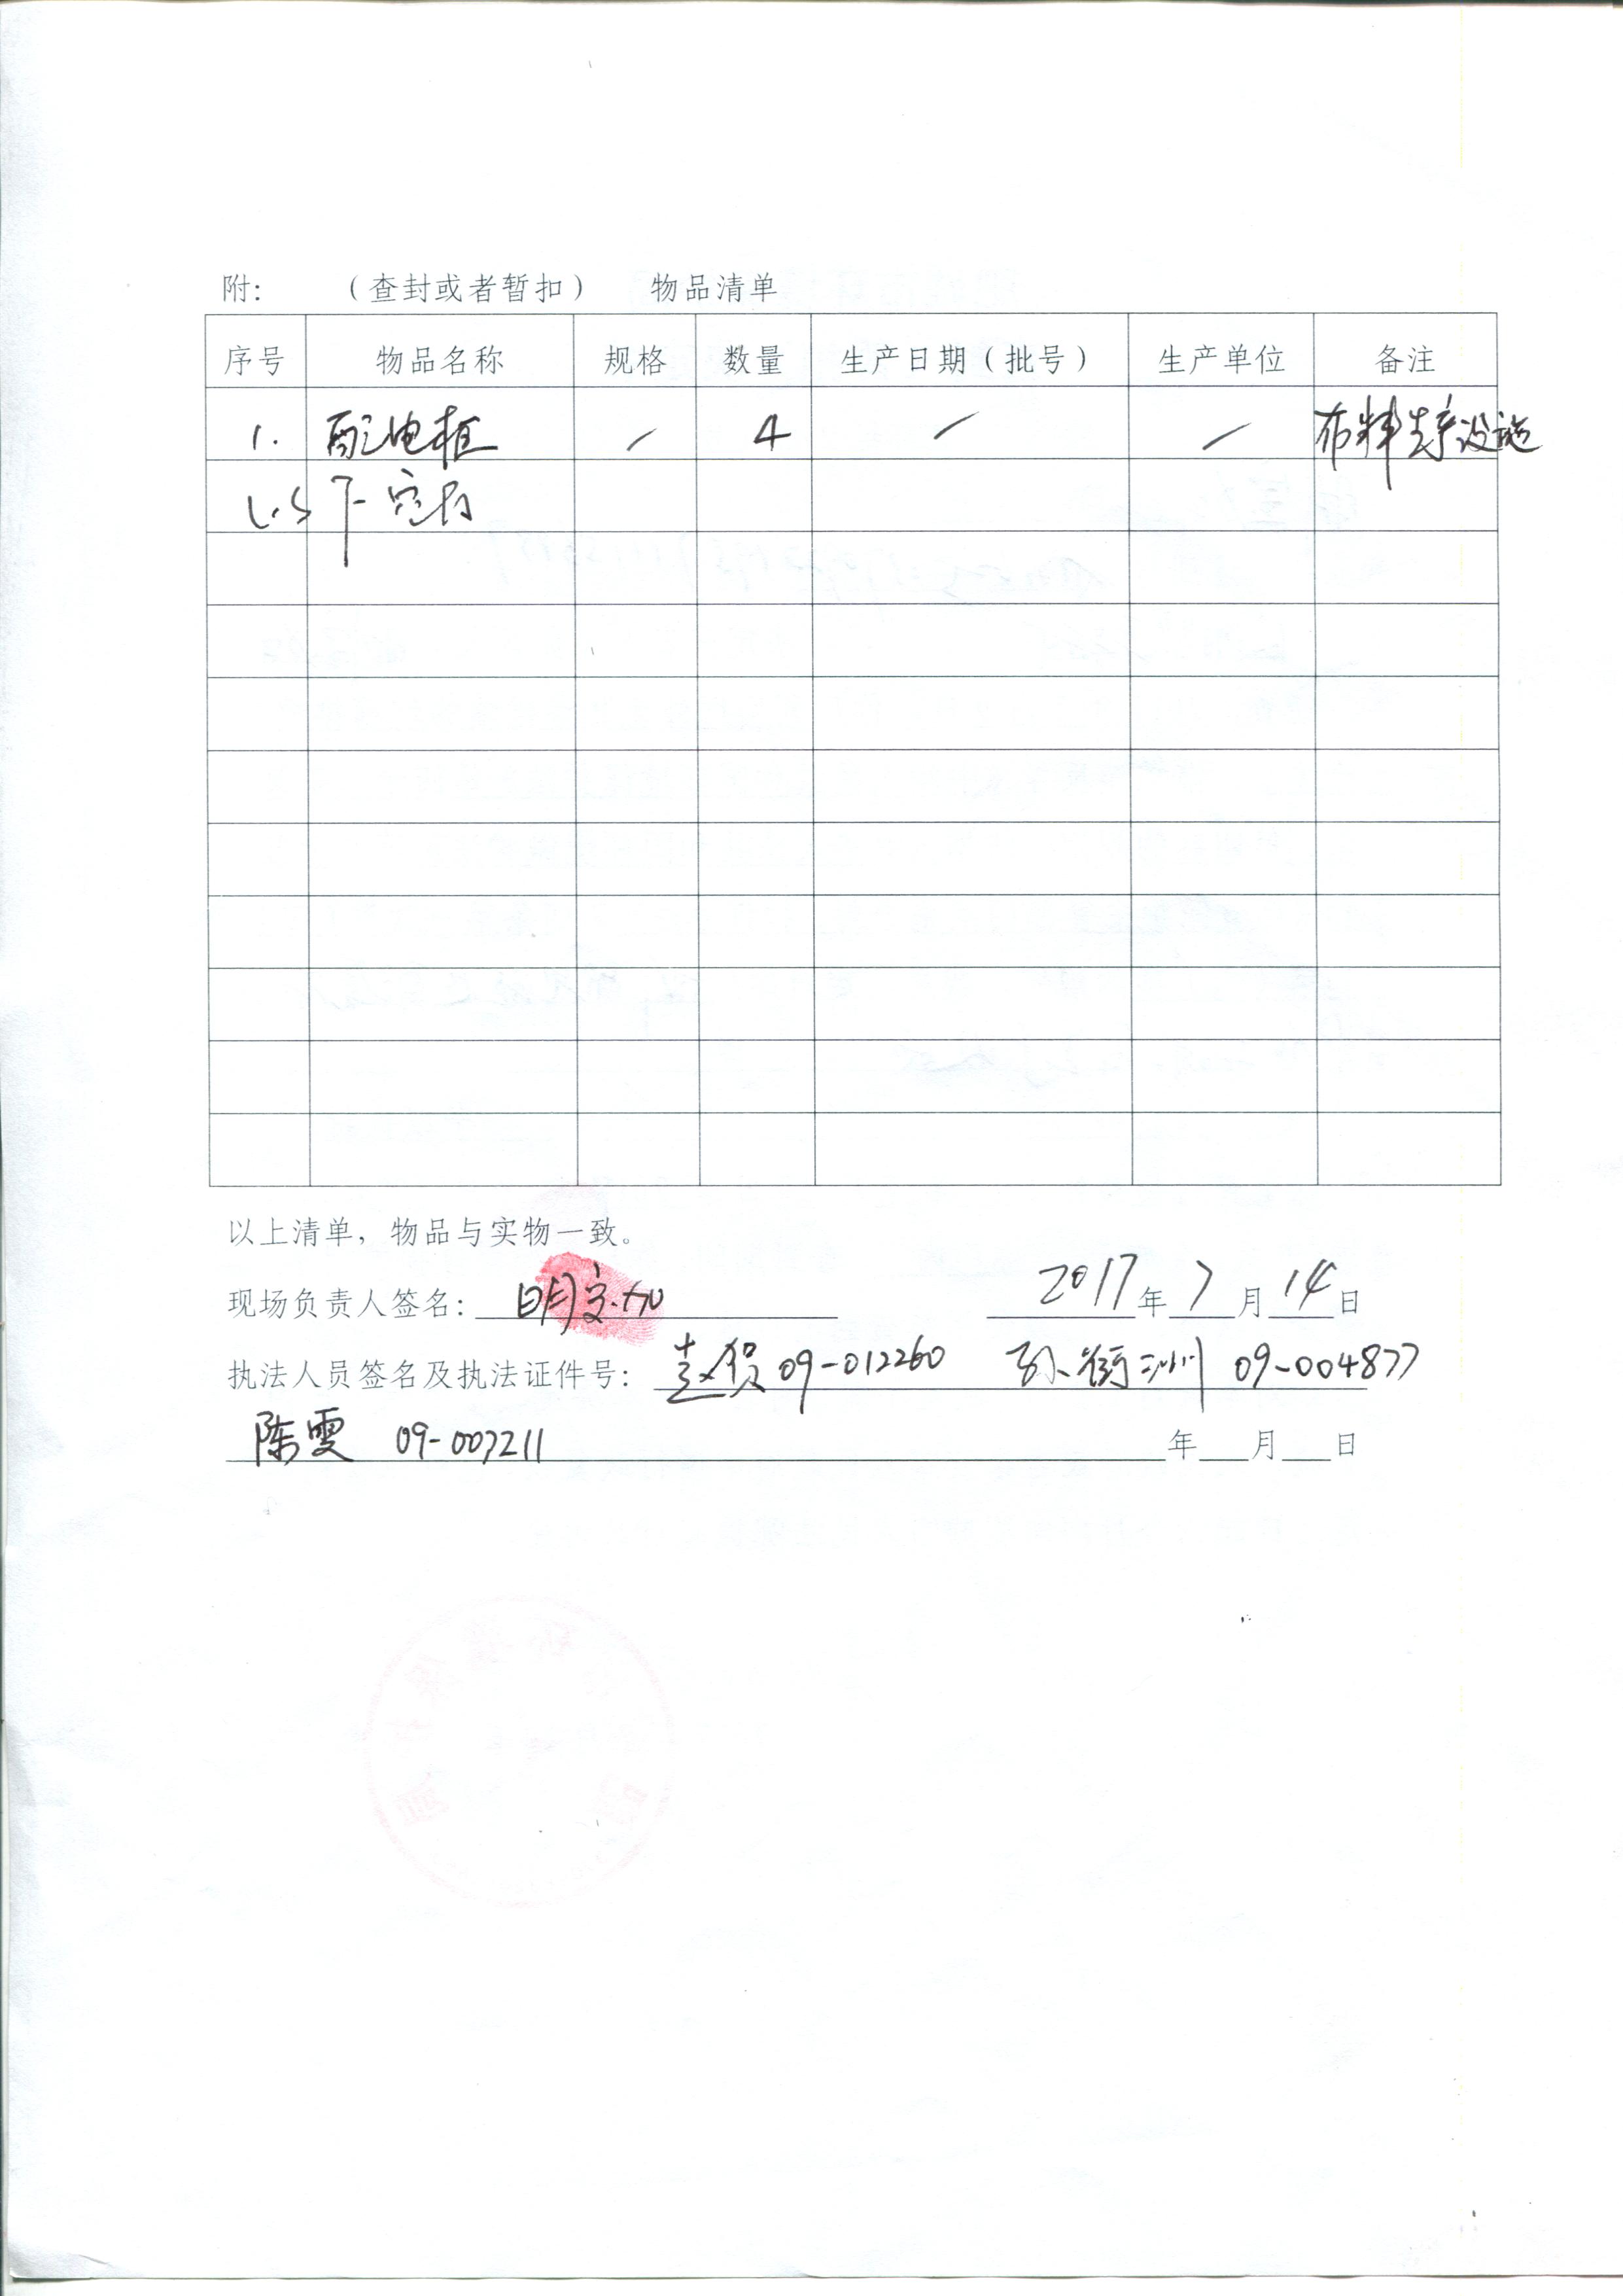 附： （查封或者暂扣） 物品清单
序号 物品名称 规格 数量 生产日期（批号） 生产单位 备注
1. 配电柜 / 4 / / 布料生产设施
以下空白
以上清单，物品与实物一致。
现场负责人签名： 明 2017年7月14日
执法人员签名及执法证件号： 09-012260 孙 09-004877
陈雯 09-007211 年 月 日